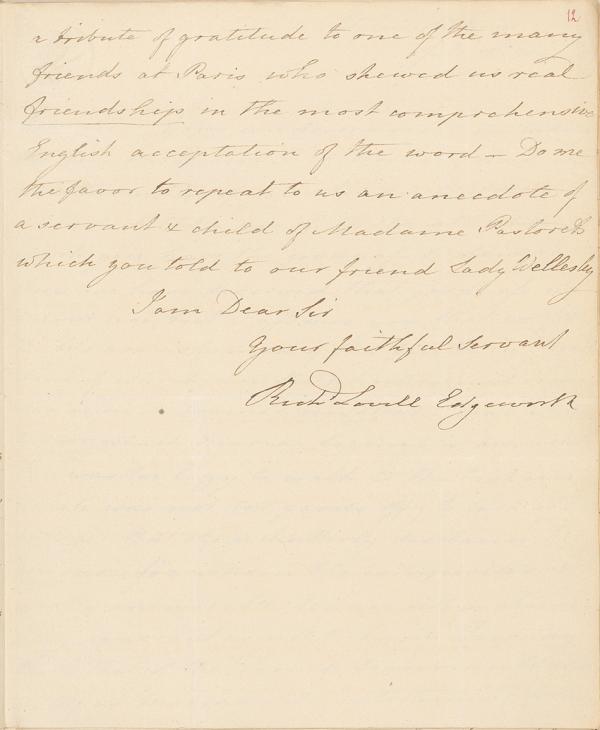 12
a tribute of gratitude to one of the many
friends at Paris who shewed us real
friendship in the most comprehensive
English acceptation of the word – Do me
the favor to repeat to us an anecdote of
a servant & child of Madame Pastorets
which you told to our friend Lady Wellesley
I am Dear Sir
Your faithful servant
Richd Lovell Edgeworth